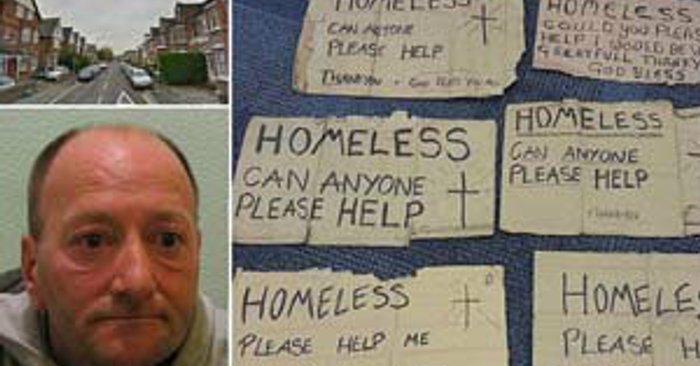 HOMELESS
CAN ANYONE
PLEASE HELP
THANKYOU
HOMELESS
COULD YOU PLEASE
HELP I WOULD BE
GREATFULL THANK
GOD BLESS
HOMELESS
CAN ANYONE
PLEASE HELP
HOMELESS
CAN ANYONE
PLEASE HELP
THANKYOU
HOMELESS
PLEASE HELP ME
HOMELES
PLEASE H